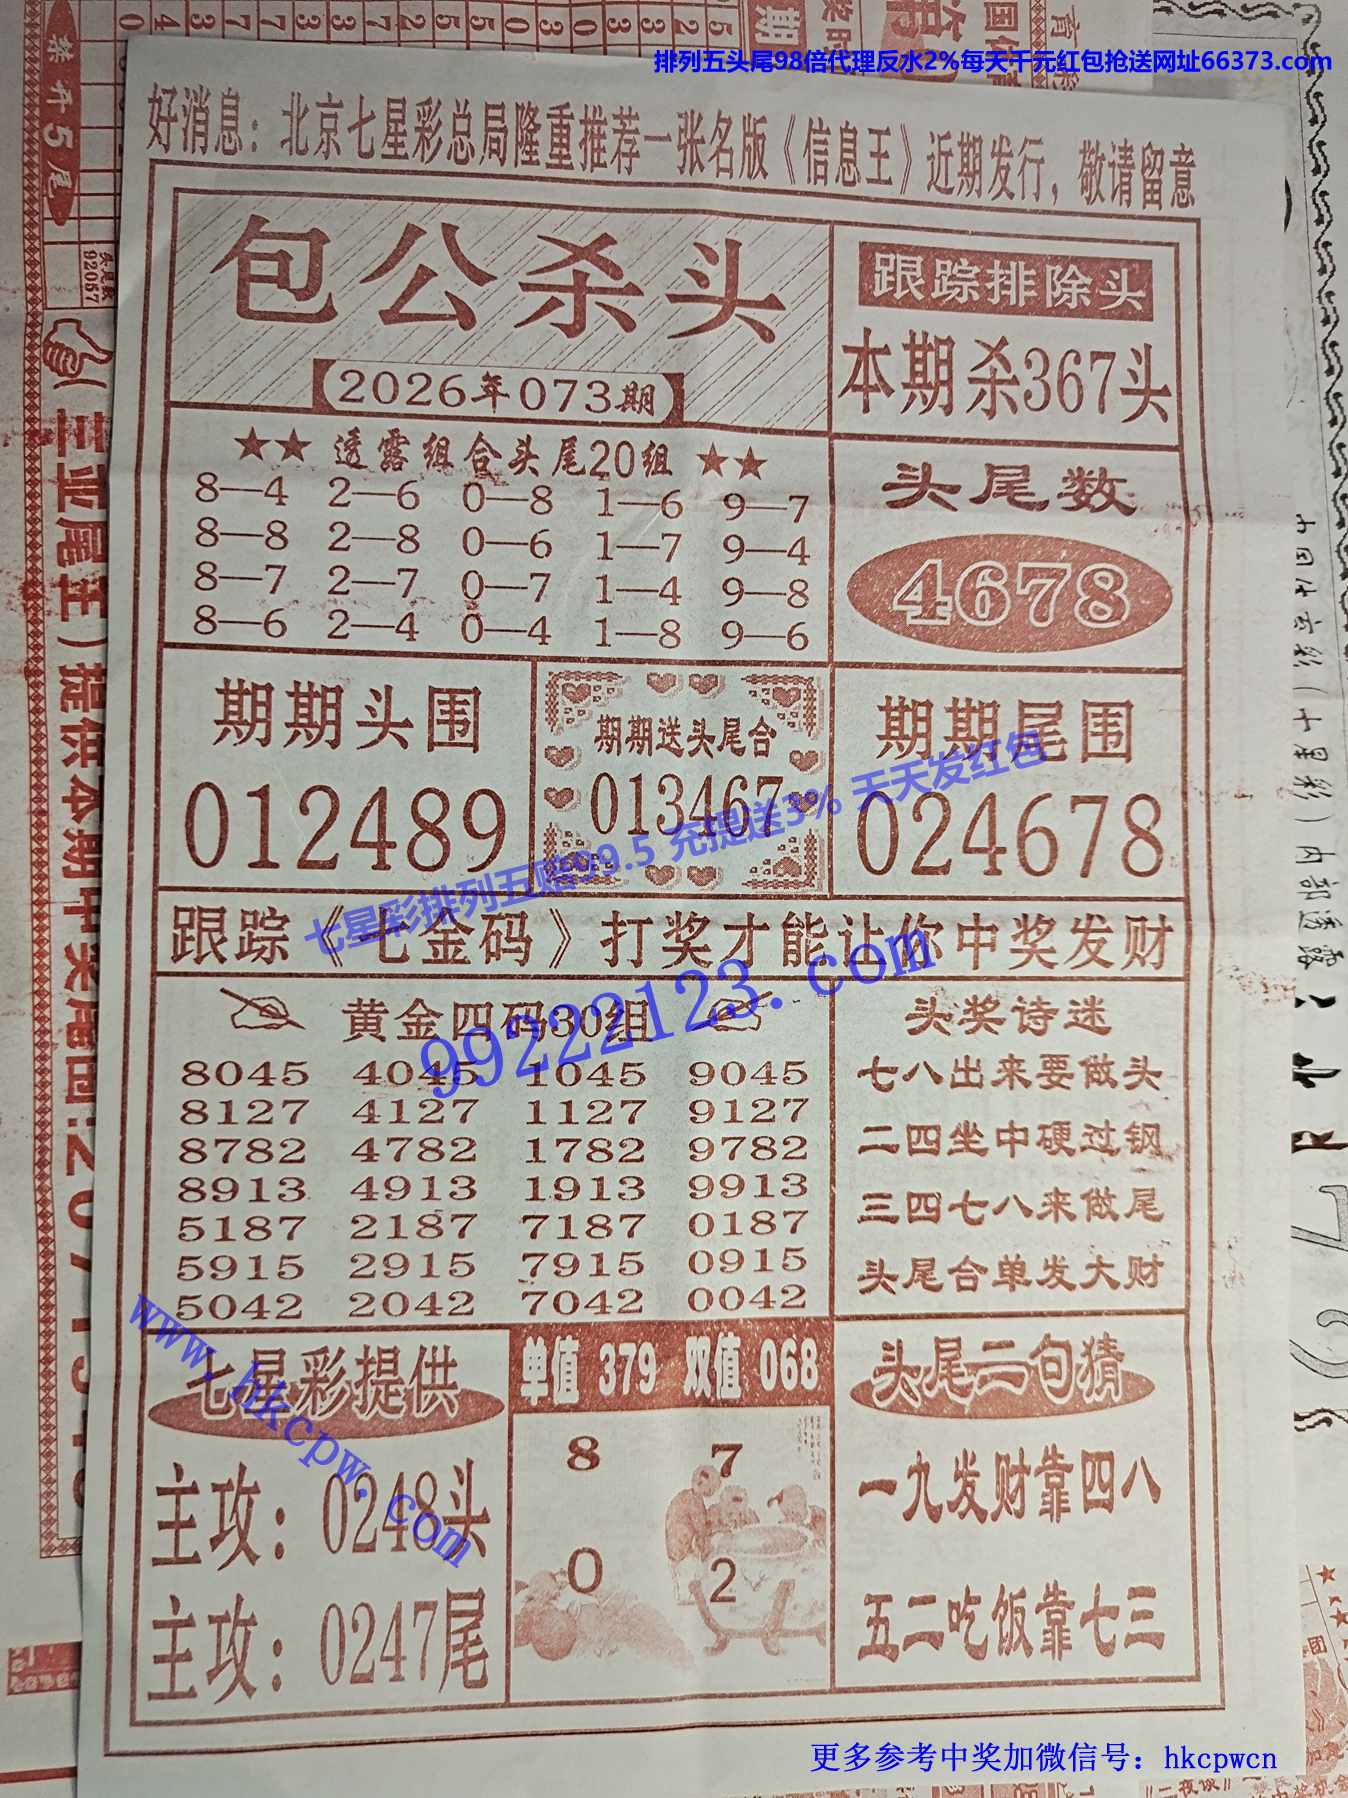 排列五头尾98倍代理反水2%每天千元红包抢送网址66373.com
好消息：北京七星彩总局隆重推荐一张名版《信息王》近期发行，敬请留意
包公杀头
2026年073期
跟踪排除头
本期杀367头
★★ 透露组合头尾20组 ★★
8—4 2—6 0—8 1—6 9—7
8—8 2—8 0—6 1—7 9—4
8—7 2—7 0—7 1—4 9—8
8—6 2—4 0—4 1—8 9—6
头尾数
4678
期期头围
012489
期期送头尾合
013467
期期尾围
024678
七星彩排列五赔99.5 充提送3% 天天发红包
跟踪《七金码》打奖才能让你中奖发财
99222123.com
黄金四码30组
8045 4045 1045 9045
8127 4127 1127 9127
8782 4782 1782 9782
8913 4913 1913 9913
5187 2187 7187 0187
5915 2915 7915 0915
5042 2042 7042 0042
头奖诗迷
七八出来要做头
二四坐中硬过钢
三四七八来做尾
头尾合单发大财
七星彩提供
主攻：0248头
主攻：0247尾
www.hkcpw.com
单值 379 双值 068
8 7
0 2
头尾二句猜
一九发财靠四八
五二吃饭靠七三
更多参考中奖加微信号：hkcpwcn
荣升5尾
头尾数
92057
(三亚尾王)提供本期中奖尾面:
内部透露